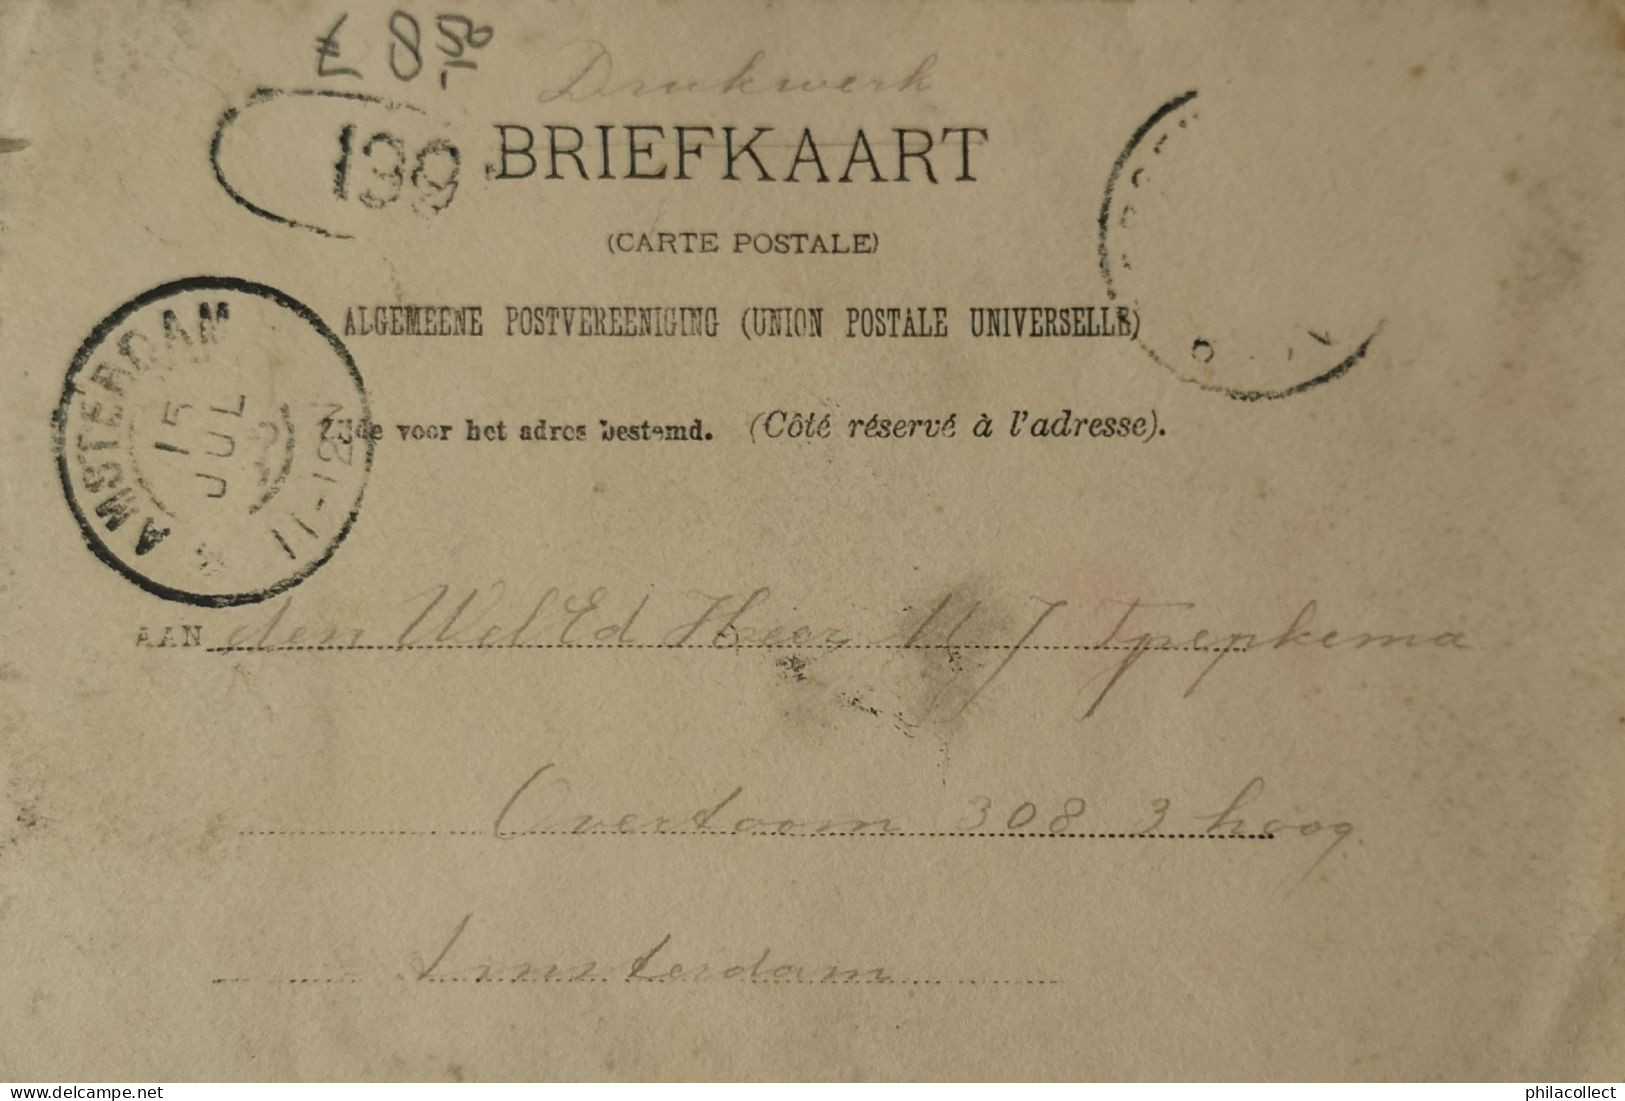 £ 8 50
Drukwerk
139
BRIEFKAART
(CARTE POSTALE)
ALGEMEENE POSTVEREENIGING (UNION POSTALE UNIVERSELLE)
AMSTERDAM
15 JUL
11-12N
Zijde voor het adres bestemd. (Côté réservé à l'adresse).
AAN den WelEd Heer J Tjepkema
Overtoom 308 3 hoog
Amsterdam
philacollect